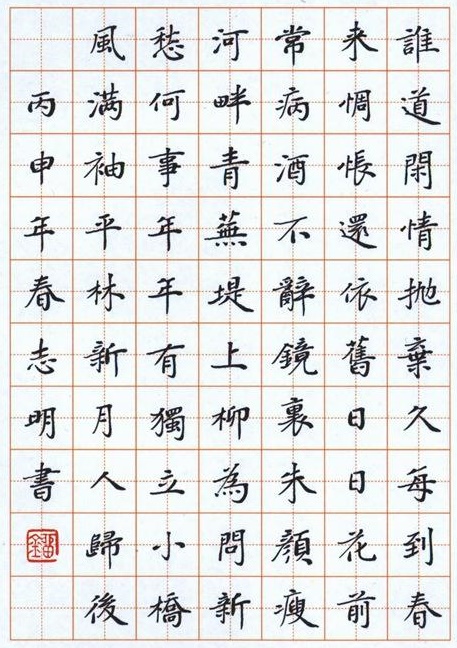 誰道閑情抛棄久每到春
来惆悵還依舊日日花前
常病酒不辭鏡裏朱顔瘦
河畔青蕪堤上柳為問新
愁何事年年有獨立小橋
風满袖平林新月人歸後
丙申年春志明書